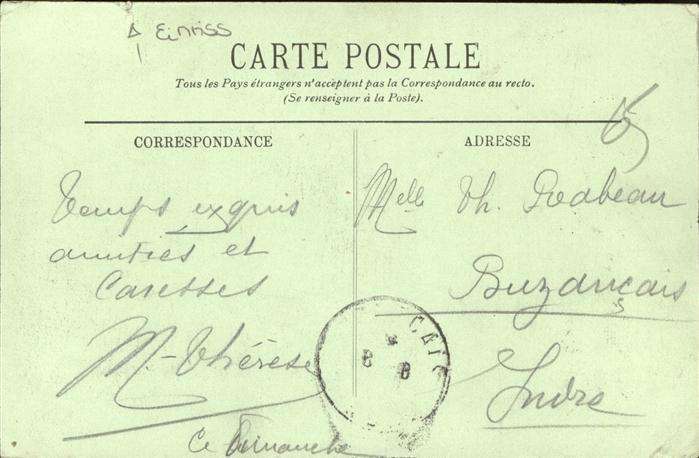 Einriss
CARTE POSTALE
Tous les Pays étrangers n'acceptent pas la Correspondance au recto.
(Se renseigner à la Poste).
CORRESPONDANCE
Temps exquis
amitiés et
Caresses
M.-Thérèse
Ce Dimanche
ADRESSE
Melle Th. Rabeau
Buzançais
Indre